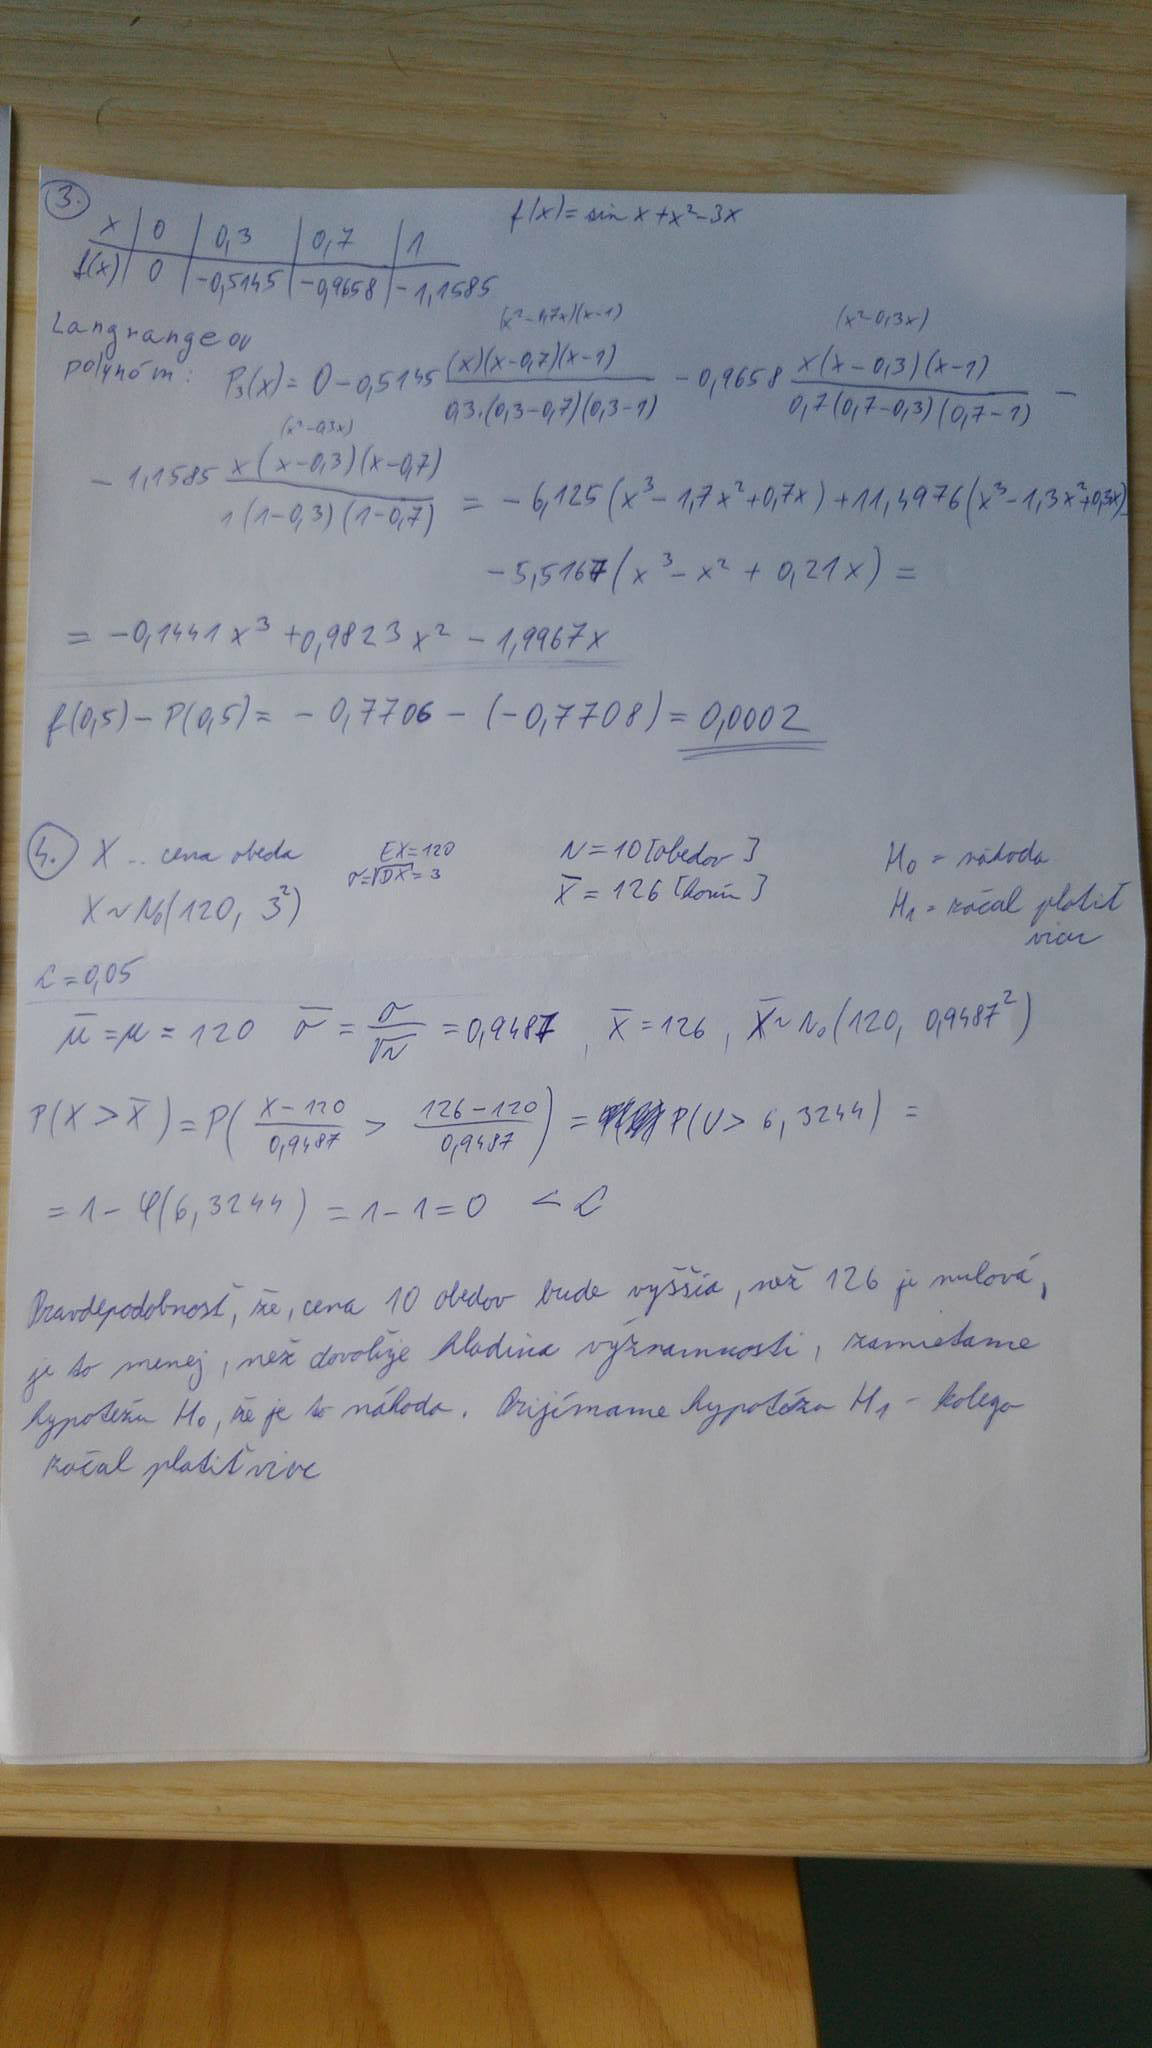 3.
f(x) = sin x + x² - 3x
x | 0 | 0,3 | 0,7 | 1
f(x) | 0 | -0,5145 | -0,9658 | -1,1585
Langrangeov
polynóm:
(x²-0,7x)(x-1) (x²-0,3x)
P₃(x) = 0 - 0,5145 (x)(x-0,7)(x-1) / 0,3·(0,3-0,7)(0,3-1) - 0,9658 x(x-0,3)(x-1) / 0,7(0,7-0,3)(0,7-1) -
(x²-0,3x)
- 1,1585 x(x-0,3)(x-0,7) / 1(1-0,3)(1-0,7) = -6,125(x³-1,7x²+0,7x) + 11,4976(x³-1,3x²+0,3x)-
-5,5167(x³-x²+0,21x) =
= -0,1441x³ + 0,9823x² - 1,9967x
f(0,5) - P(0,5) = -0,7706 - (-0,7708) = 0,0002
4. X .. cena obeda EX=120 N = 10 [obedov] H₀ = náhoda
σ=√DX = 3
X ~ No(120, 3²) X̄ = 126 [korún] H₁ = začal platiť
viac
α = 0,05
μ̄ = μ = 120 σ̄ = σ/√N = 0,9487, X̄ = 126, X̄ ~ No(120, 0,9487²)
P(X > X̄) = P( X-120 / 0,9487 > 126-120 / 0,9487 ) = P(U > 6,3244) =
= 1 - φ(6,3244) = 1 - 1 = 0 < α
Pravdepodobnosť, že, cena 10 obedov bude vyššia, než 126 je nulová,
je to menej, než dovoľuje hladina významnosti, zamietame
hypotézu H₀, že je to náhoda. Prijímame hypotézu H₁ - kolega
začal platiť viac